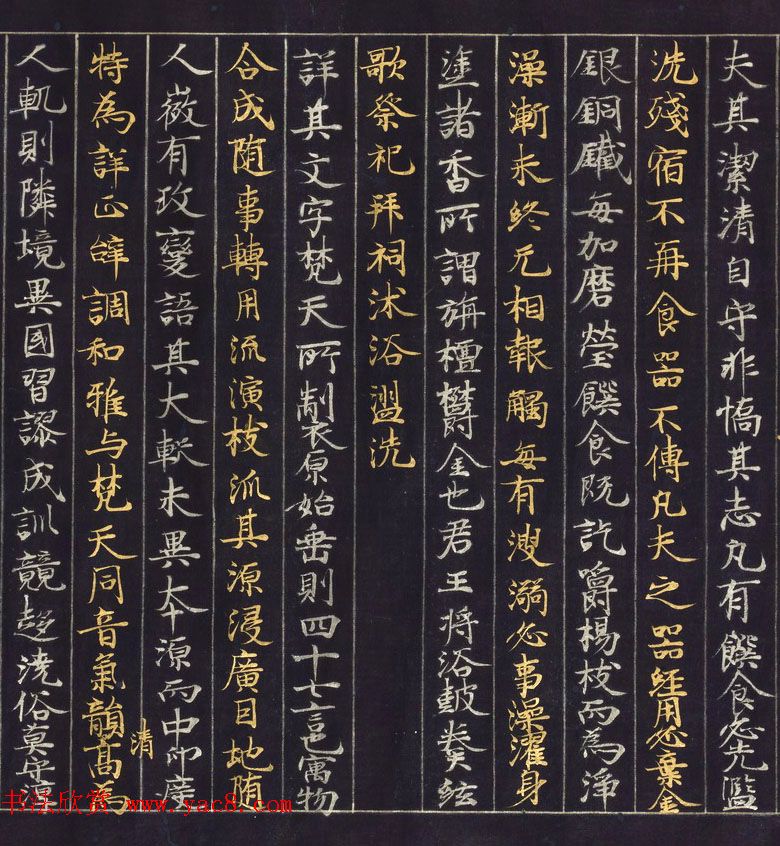 夫其潔清自守非憍其志凡有饌食必先盥
洗殘宿不再食器不傳凡夫之器經用必棄金
銀銅鐵每加磨瑩饌食既訖嚼楊枝而為淨
澡漱未終无相報觸每有溲溺必事澡濯身
塗諸香所謂旃檀欝金也君王將浴鼓奏絃
歌祭祀拜祠沐浴盥洗
詳其文字梵天所製原始垂則四十七言寓物
合成随事轉用流演枝派其源浸廣因地随
人微有改變語其大較未異本源而中印度
特為詳正辭調和雅与梵天同音氣韻高為
清
人軌則隣境異國習謬成訓競趍澆俗莫守
书法欣赏 www.yac8.com